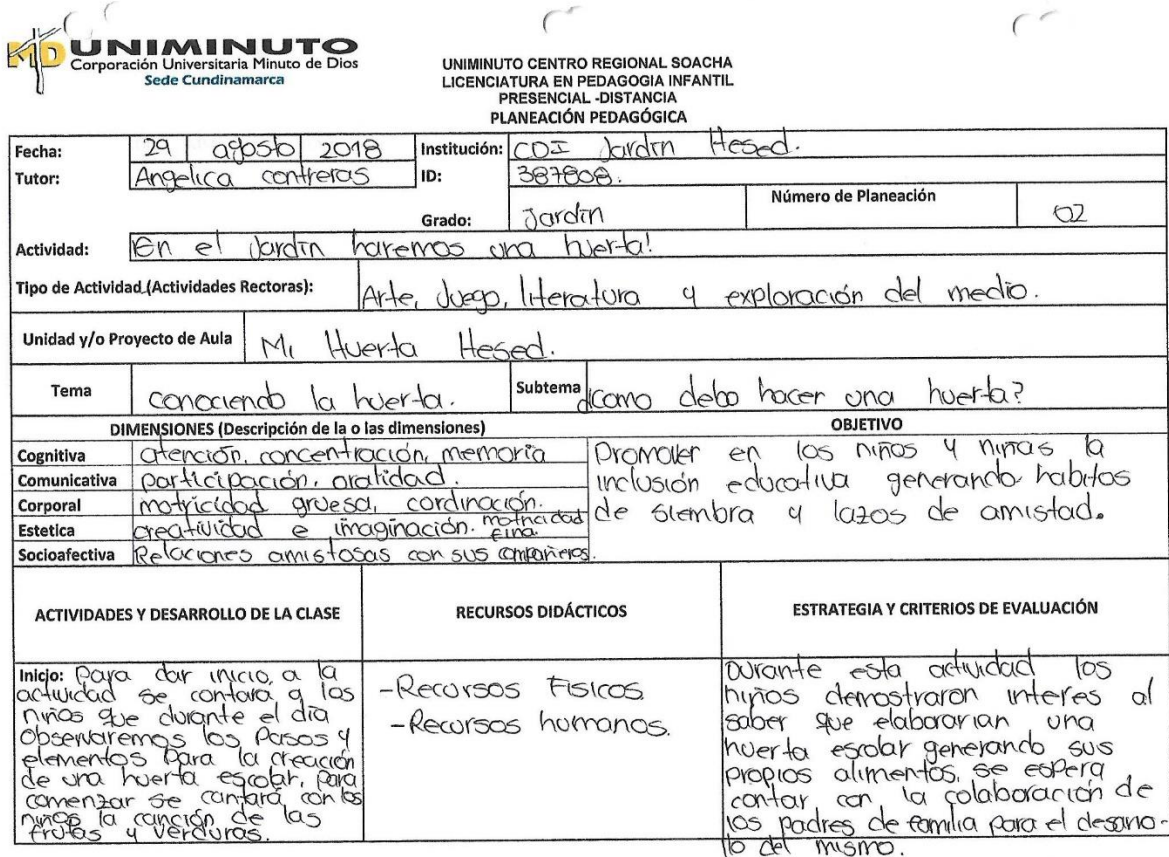 UNIMINUTO
Corporación Universitaria Minuto de Dios
Sede Cundinamarca
UNIMINUTO CENTRO REGIONAL SOACHA
LICENCIATURA EN PEDAGOGIA INFANTIL
PRESENCIAL -DISTANCIA
PLANEACIÓN PEDAGÓGICA
Fecha: 29 agosto 2018 Institución: CDI Jardín Hesed.
Tutor: Angelica contreras ID: 387808.
Grado: Jardín Número de Planeación 02
Actividad: ¡En el Jardín haremos una huerta!
Tipo de Actividad (Actividades Rectoras): Arte, Juego, literatura y exploración del medio.
Unidad y/o Proyecto de Aula Mi Huerta Hesed.
Tema conociendo la huerta. Subtema ¿como debo hacer una huerta?
DIMENSIONES (Descripción de la o las dimensiones) OBJETIVO
Cognitiva atención, concentración, memoria
Comunicativa participación, oralidad.
Corporal motricidad gruesa, cordinación.
Estetica creatividad e imaginación. motricidad fina.
Socioafectiva Relaciones amistosas con sus compañeros.
Promover en los niños y niñas la
inclusión educativa generando habitos
de siembra y lazos de amistad.
ACTIVIDADES Y DESARROLLO DE LA CLASE RECURSOS DIDÁCTICOS ESTRATEGIA Y CRITERIOS DE EVALUACIÓN
Inicio: Para dar inicio, a la
actividad se contara a los
niños que durante el día
observaremos los pasos y
elementos para la creación
de una huerta escolar, para
comenzar se cantará con los
niños la canción de las
frutas y verduras.
-Recursos Físicos
-Recursos humanos.
Durante esta actividad los
niños demostraron interes al
saber que elaborarian una
huerta escolar generando sus
propios alimentos, se espera
contar con la colaboración de
los padres de familia para el desarro-
llo del mismo.